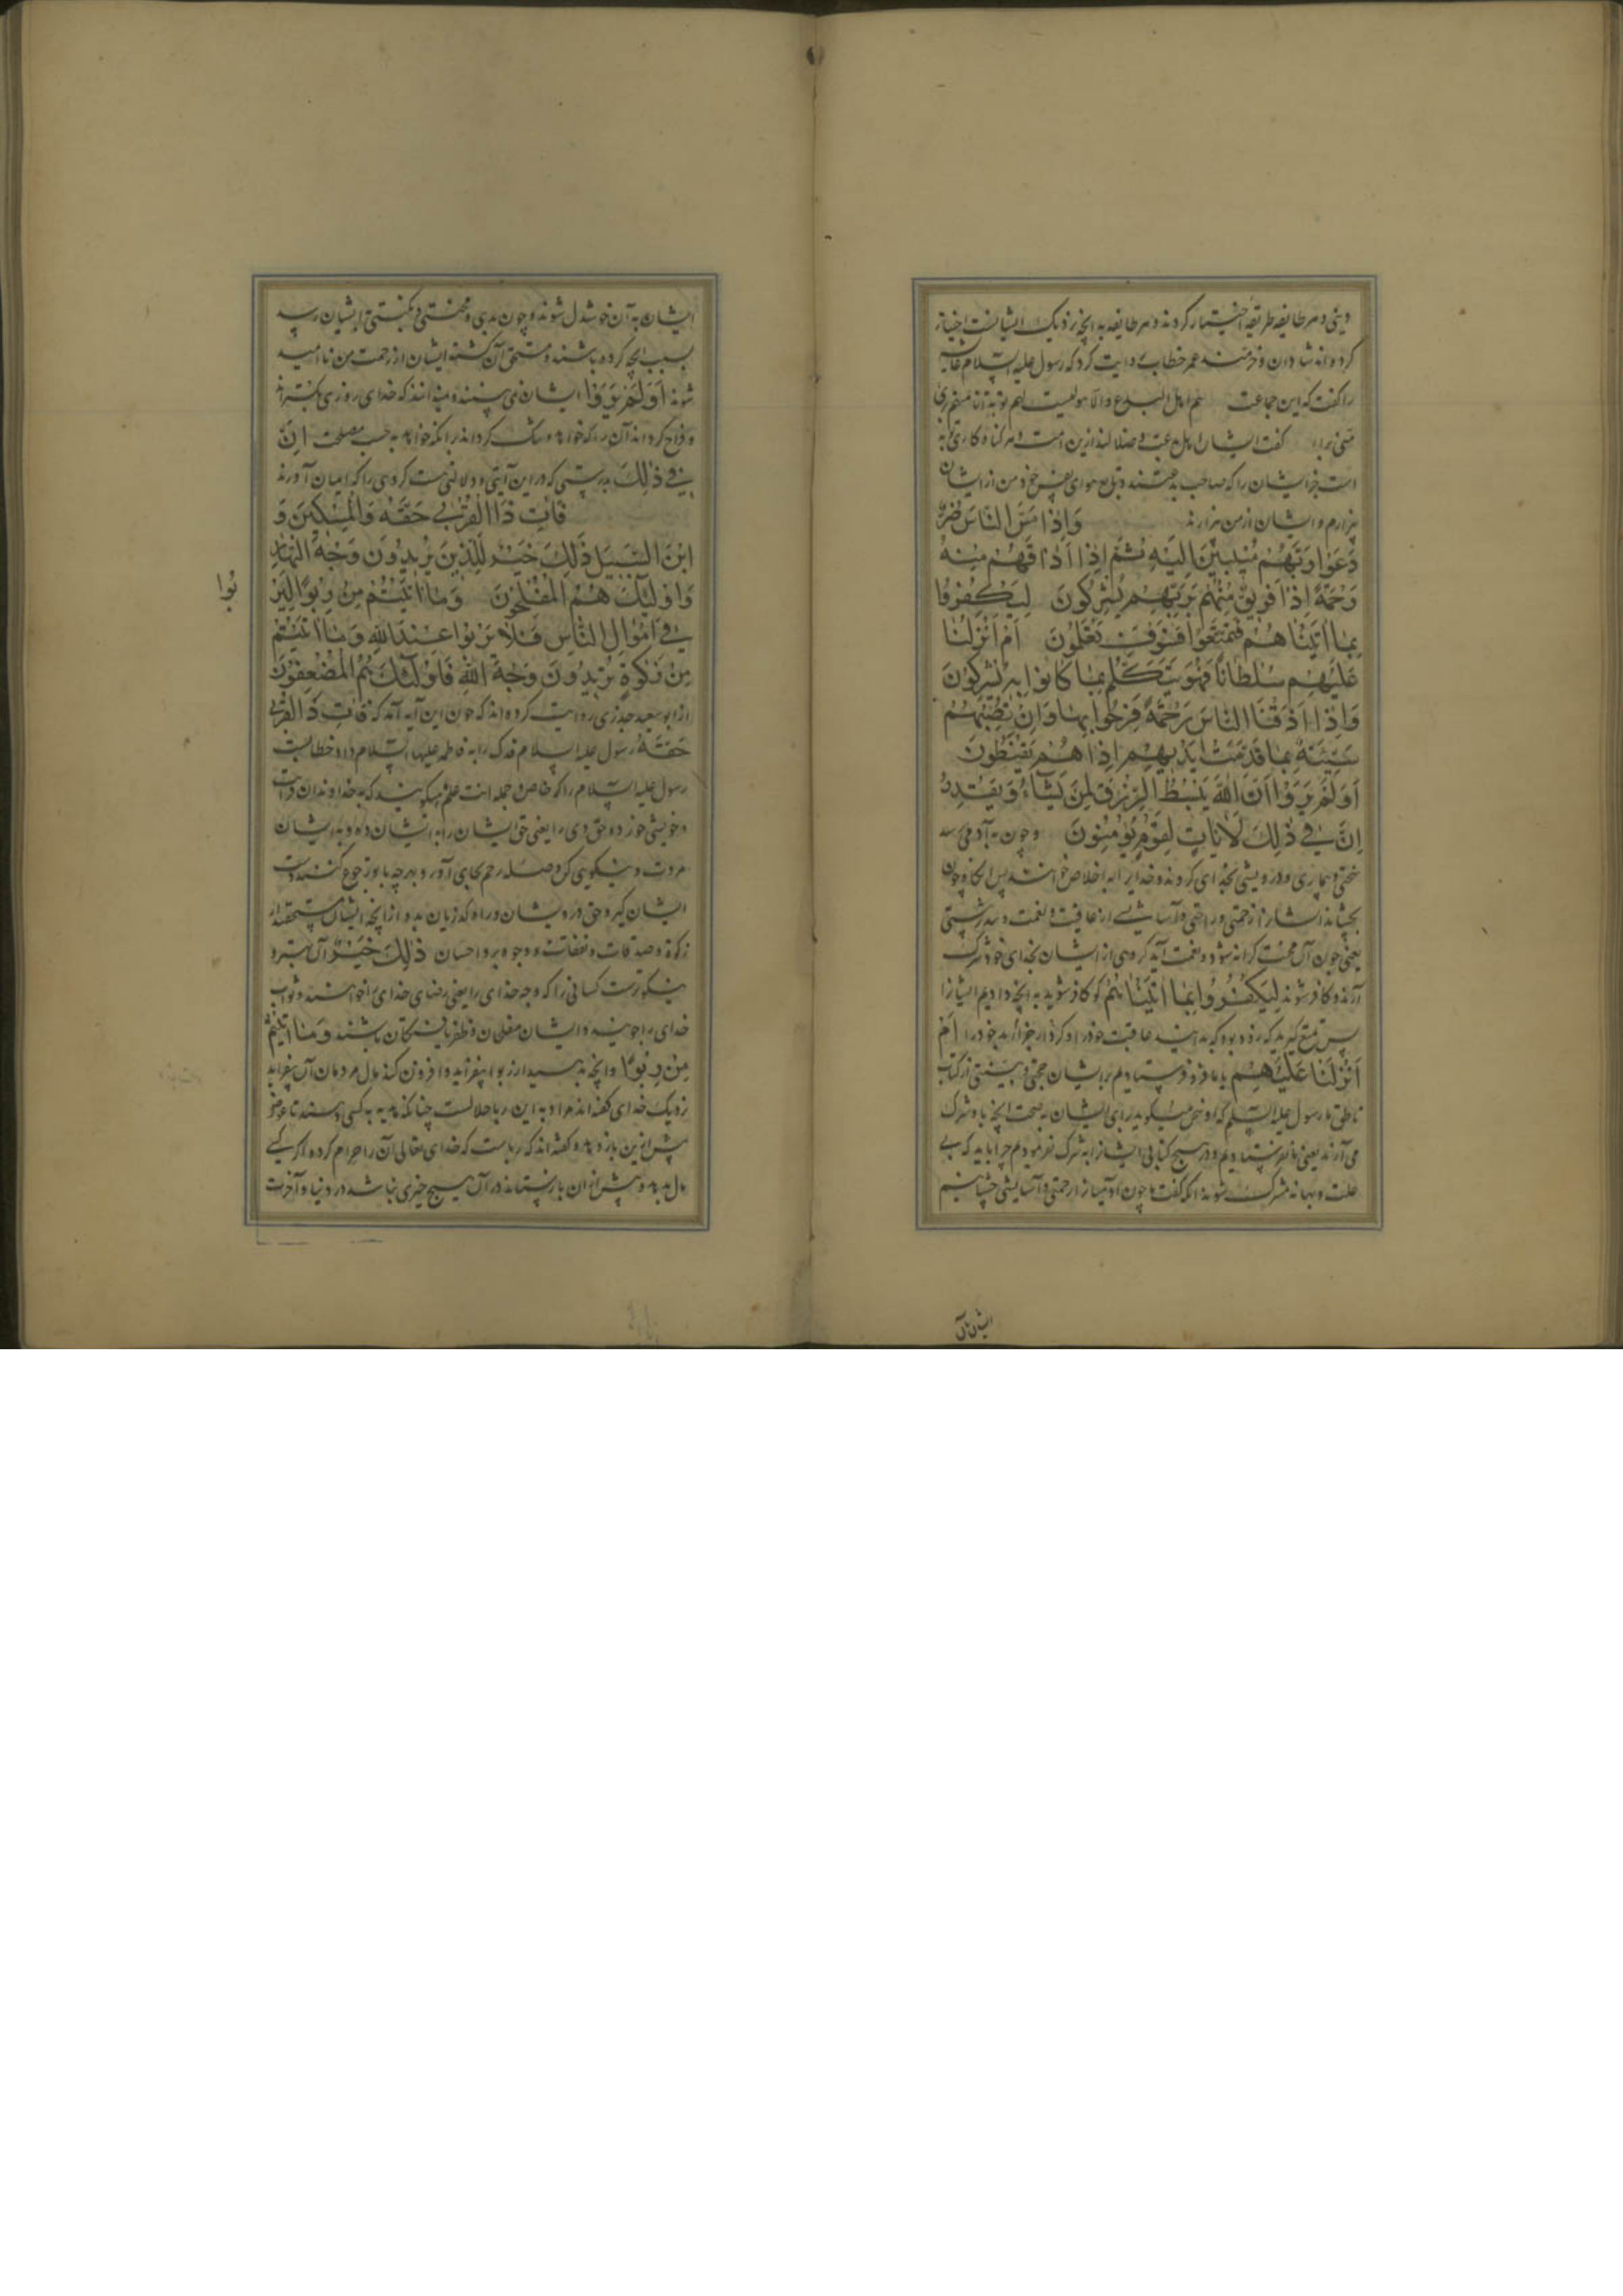 دینی و هر طایفه طریقهٔ اختیار کردند و هر طایفه به آنچه نزدیک ایشانست اختیار
کرده‌اند شادان و خرمند عمر خطاب روایت کرد که رسول علیه السلام عایشه
را گفت که این جماعت هم اهل البدع والاهوا لیست لهم توبة انا منهم بری
منی براء گفت ایشان اهل بدعت و ضلالند ازین امت و هر گناه کاری توبه
است جز ایشان را که صاحب بدعتند و تابع هوای نفس خود من از ایشان
بیزارم و ایشان از من بیزارند وَاِذَا مَسَّ النَّاسَ ضُرٌّ
دَعَوْا رَبَّهُمْ مُنِيبِينَ اِلَيْهِ ثُمَّ اِذَا اَذَاقَهُمْ مِنْهُ
رَحْمَةً اِذَا فَرِيقٌ مِنْهُمْ بِرَبِّهِمْ يُشْرِكُونَ لِيَكْفُرُوا
بِمَا اٰتَيْنَاهُمْ فَتَمَتَّعُوا فَسَوْفَ تَعْلَمُونَ اَمْ اَنْزَلْنَا
عَلَيْهِمْ سُلْطَانًا فَهُوَ يَتَكَلَّمُ بِمَا كَانُوا بِهِ يُشْرِكُونَ
وَاِذَا اَذَقْنَا النَّاسَ رَحْمَةً فَرِحُوا بِهَا وَاِنْ تُصِبْهُمْ
سَيِّئَةٌ بِمَا قَدَّمَتْ اَيْدِيهِمْ اِذَا هُمْ يَقْنَطُونَ
اَوَلَمْ يَرَوْا اَنَّ اللّٰهَ يَبْسُطُ الرِّزْقَ لِمَنْ يَشَاءُ وَيَقْدِرُ
اِنَّ فِي ذٰلِكَ لَاٰيَاتٍ لِقَوْمٍ يُؤْمِنُونَ و چون به آدمی رسد
سختی و بیماری و درویشی بخدای گروند و خدایرا به اخلاص خوانند پس آنگاه چون
بچشاند ایشانرا از رحمتی و راحتی و آسایشی از عافیت و نعمت و تندرستی
یعنی چون آن محنت کرانه شود و نعمت آید گروهی از ایشان بخدای خود شرک
آرند و کافر شوند لِيَكْفُرُوا بِمَا اٰتَيْنَاهُمْ کو کافر شوید به آنچه دادیم ایشانرا
پس تمتع گیرید که زود بود که بدانید عاقبت خود را و کردار جزا آید خود را اَمْ
اَنْزَلْنَا عَلَيْهِمْ یا ما فرو فرستادیم بر ایشان حجتی و بینتی از کتاب
ناطق یا رسول علیه السلام که او سخن میگوید برای ایشان به صحت آنچه با او شرک
می آرند یعنی ما نفرستادیم و در هیچ کتابی ایشانرا به شرک نفرمودیم چرا باید که بی
علت و بهانه مشرک شوند آنگه گفت ما چون آدمیانرا رحمتی و آسایشی چشانیم
ایشان بآن
ایشان به آن خوشدل شوند و چون بدی و محنتی و نکبتی به ایشان رسد
بسبب آنچه کرده باشند و مستحق آن گشته ایشان از رحمت من ناامید
شوند اَوَلَمْ يَرَوْا ایشان نمی بینند و نمیدانند که خدای روزی بگستراند
و فراخ گرداند آن را که خواهد و تنگ گرداند بر آنکه خواهد به حسب مصلحت اِنَّ
فِي ذٰلِكَ بدرستی که در این آیتی و دلالتی هست گروهی را که ایمان آورند
فَاٰتِ ذَا الْقُرْبٰى حَقَّهُ وَالْمِسْكِينَ وَ
ابْنَ السَّبِيلِ ذٰلِكَ خَيْرٌ لِلَّذِينَ يُرِيدُونَ وَجْهَ اللّٰهِ
وَاُولٰئِكَ هُمُ الْمُفْلِحُونَ وَمَا اٰتَيْتُمْ مِنْ رِبًوا لِيَرْ
بُوا
فِي اَمْوَالِ النَّاسِ فَلَا يَرْبُوا عِنْدَ اللّٰهِ وَمَا اٰتَيْتُمْ
مِنْ زَكٰوةٍ تُرِيدُونَ وَجْهَ اللّٰهِ فَاُولٰئِكَ هُمُ الْمُضْعِفُونَ
از ابو سعید خدری روایت کرده‌اند که چون این آیه آمد که فَاٰتِ ذَا الْقُرْبٰى
حَقَّهُ رسول علیه السلام فدک را به فاطمه علیها السلام داد خطابست
رسول علیه السلام را که خاص و جمله امت علم میگویند که به خداوندان قرابت
و خویشی خود ده حق وی را یعنی حق ایشان را به ایشان ده و به ایشان
مروت و نیکویی کن و صله رحم بجای آور و به هر چه با تو رجوع کنند دست
ایشان گیر و حق درویشان و راه گذریان بده از آنچه ایشان مستحقند از
زکوة و صدقات و نفقات و وجوه بر و احسان ذٰلِكَ خَيْرٌ آن بهتر و
نیکوترست کسانی را که وجه خدای را یعنی رضای خدای خواهند و ثواب
خدای را جویند و ایشان مفلحان و ظفر یافتگان باشند وَمَا اٰتَيْتُمْ
مِنْ رِبًوا و آنچه بدهید از ربوا بیفزاید و افزون کند مال مردمان آن نیفزاید
نزدیک خدای گفته‌اند مراد به این ربا حلالست چنانکه هدیه به کسی دهند تا عوض
بیش از این باز دهد و گفته‌اند که رباست که خدای تعالی آن را حرام کرده اگر کسی
مال بدهد و بیش از آن باز ستاند در آن هیچ خیری نباشد در دنیا و آخرت